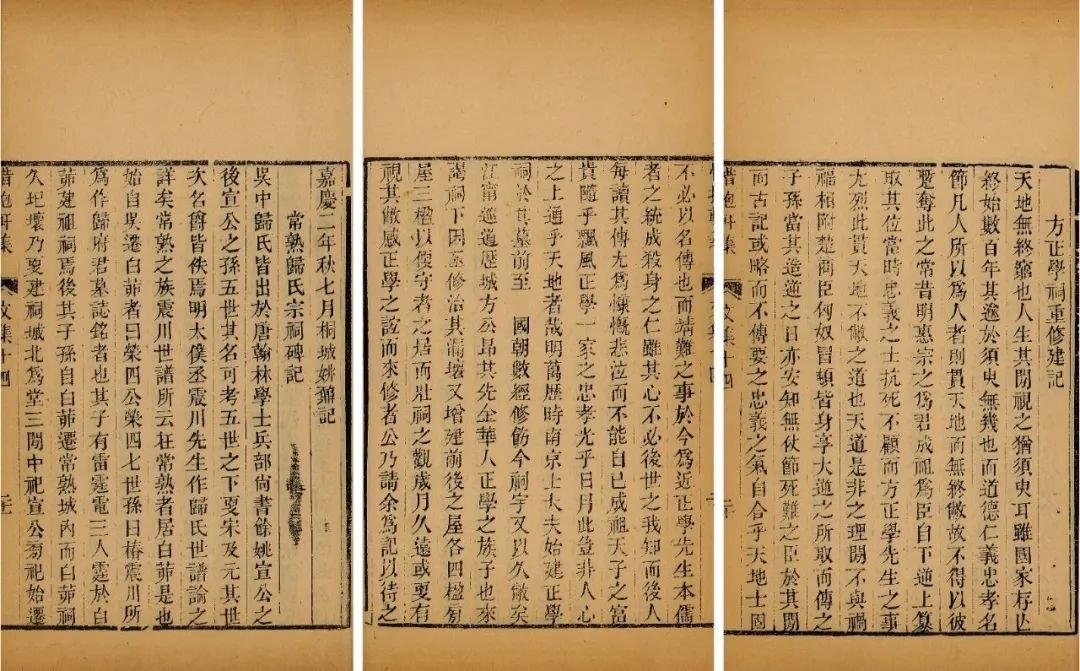 方正學祠重修建記
天地無終窮也人生其閒視之猶須臾耳雖國家存亾
終始數百年其邈於須臾無幾也而道德仁義忠孝名
節凡人所以爲人者則貫天地而無終敝故不得以彼
蹔奪此之常昔明惠宗之爲君成祖爲臣自下逆上篡
取其位當時忠義之士抗死不顧而方正學先生之事
尤烈此貫天地不敝之道也天道是非之理閒不與禍
福相附楚商臣匈奴冒頓皆身享大逆之所取而傳之
子孫當其造逆之日亦安知無仗節死難之臣於其閒
而古記或略而不傳要之忠義之氣自合乎天地士固
惜抱軒集 文集十四
不必以名傳也而靖難之事於今爲近正學先生本儒
者之統成殺身之仁雖其心不必後世之我知而後人
每讀其傳尤爲慷慨悲泣而不能自已成祖天子之富
貴隨乎飄風正學一家之忠孝光乎日月此豈非人心
之上通乎天地者哉明萬歷時南京士大夫始建正學
祠於其墓前至 國朝數經修飭今祠宇又以久敝矣
江甯巡道歷城方公昻其先金華人正學之族子也來
謁祠下因亟修治其漏壞又增建前後之屋各四楹旁
屋三楹以便守者之居而壯祠之觀歲月久遠或更有
視其敝感正學之誼而來修者公乃請余爲記以待之
嘉慶二年秋七月桐城姚鼐記
常熟歸氏宗祠碑記
吳中歸氏皆出於唐翰林學士兵部尚書餘姚宣公之
後宣公之孫五世其名可考五世之下更宋及元其世
次名爵皆佚焉明太僕丞震川先生作歸氏世譜論之
詳矣常熟之族震川世譜所云在常熟者居白茆是也
始自吳遷白茆者曰榮四公榮四七世孫曰椿震川所
爲作歸府君墓誌銘者也其子有雷霆電三人霆於白
茆建祖祠焉後其子孫自白茆遷常熟城內而白茆祠
久圮壞乃更建祠城北爲堂三閒中祀宣公旁祀始遷
惜抱軒集 文集十四